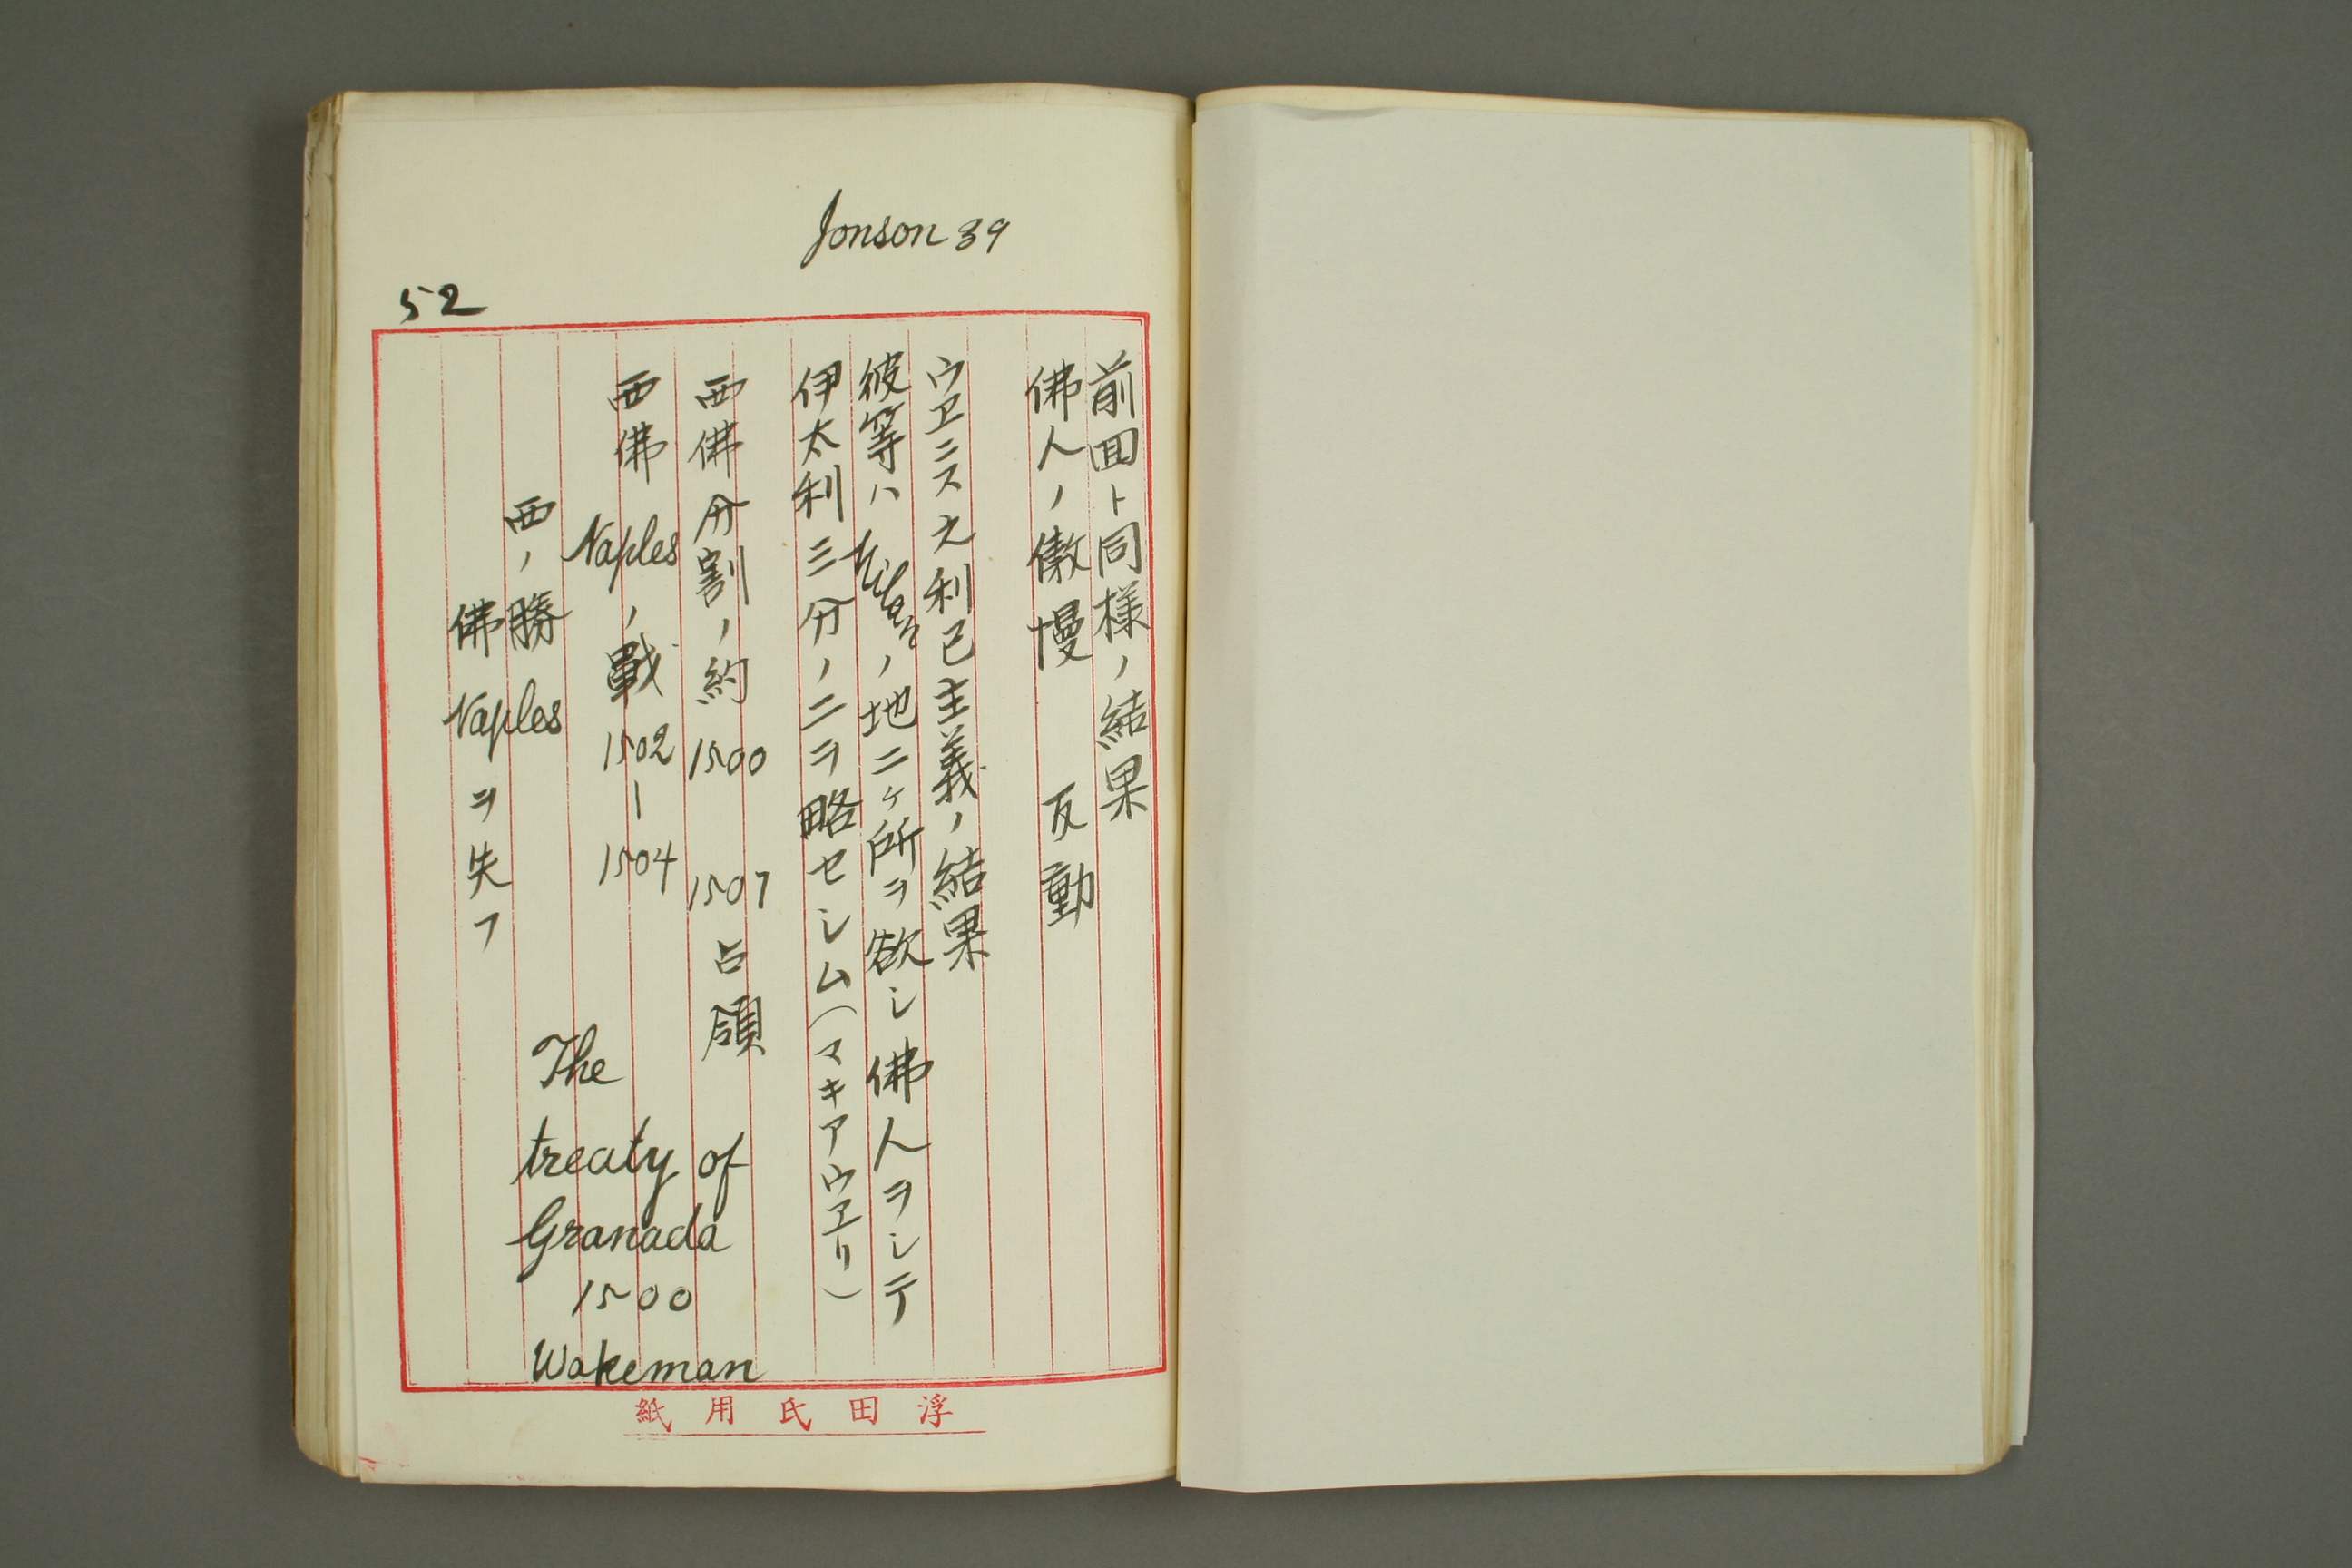 Jonson 39
52
前回ト同様ノ結果
佛人ノ傲慢 反動
ウエニス之利己主義ノ結果
彼等ハ Milanノ地ニヶ所ヲ欲シ佛人ヲシテ
伊太利三分ノ二ヲ略セシム(マキアウエリ)
西佛分割ノ約 1500 1501 占領
西佛 Naplesノ戦 1502—1504
西ノ勝
佛 Naples ヲ失フ
The
treaty of
Granada
1500
Wakeman
紙用氏田浮